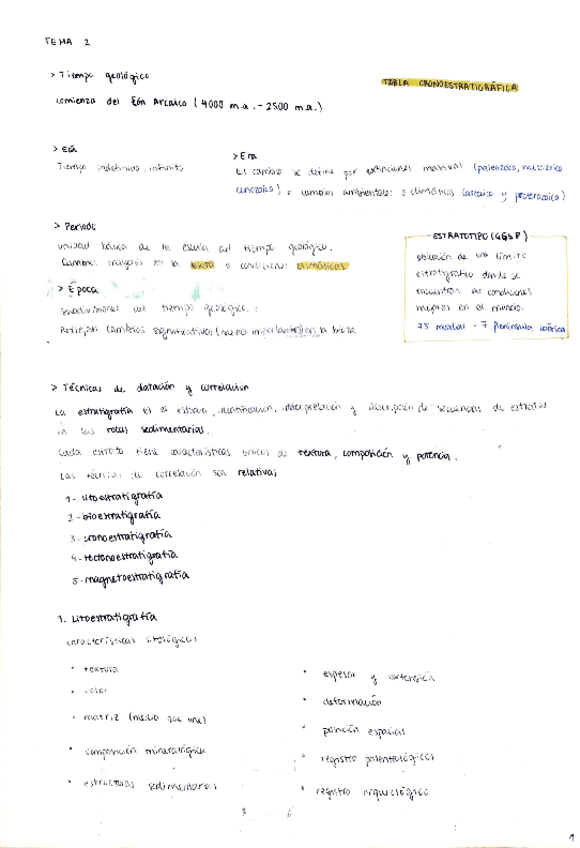 TEMA 2
> Tiempo geológico
TABLA CRONOESTRATIGRÁFICA
comienza del Eón Arcaico (4000 m.a. - 2500 m.a.)
> Eón
Tiempo indefinido, infinito
> Era
El cambio se define por extinciones masivas (paleozoico, mesozoico
cenozoico) o cambios ambientales o climáticos (arcaico y proterozoico)
> Periodo
unidad básica de la escala del tiempo geológico.
Cambios mayores en la biota o condiciones climáticas
> Época
subdivisiones del tiempo geológico.
Reflejan cambios significativos (menos importantes) en la biota
ESTRATOTIPO (GGSP)
ubicación de un límite
estratigráfico donde se
encuentran las condiciones
mejores en el mundo.
75 mundial - 7 Península ibérica
> Técnicas de datación y correlación
La estratigrafía es el estudio, identificación, interpretación y descripción de secuencias de estratos
en las rocas sedimentarias.
Cada estrato tiene características únicas de textura, composición y potencia.
Las técnicas de correlación son relativas;
1- litoestratigrafía
2- bioestratigrafía
3- cronoestratigrafía
4- tectonoestratigrafía
5- magnetoestratigrafía
1. Litoestratigrafía
características litológicas
• textura
• color
• matriz (medio que une)
• composición mineralógica
• estructuras sedimentarias
• espesor y extensión
• deformación
• posición espacial
• registro paleontológico
• registro arqueológico
1